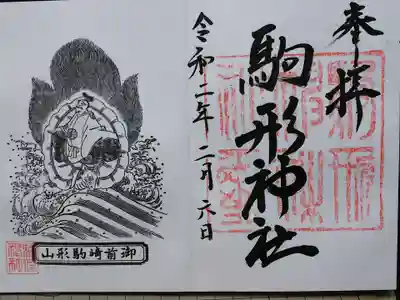 奉拝
駒形神社
令和二年二月六日
山形駒崎前御